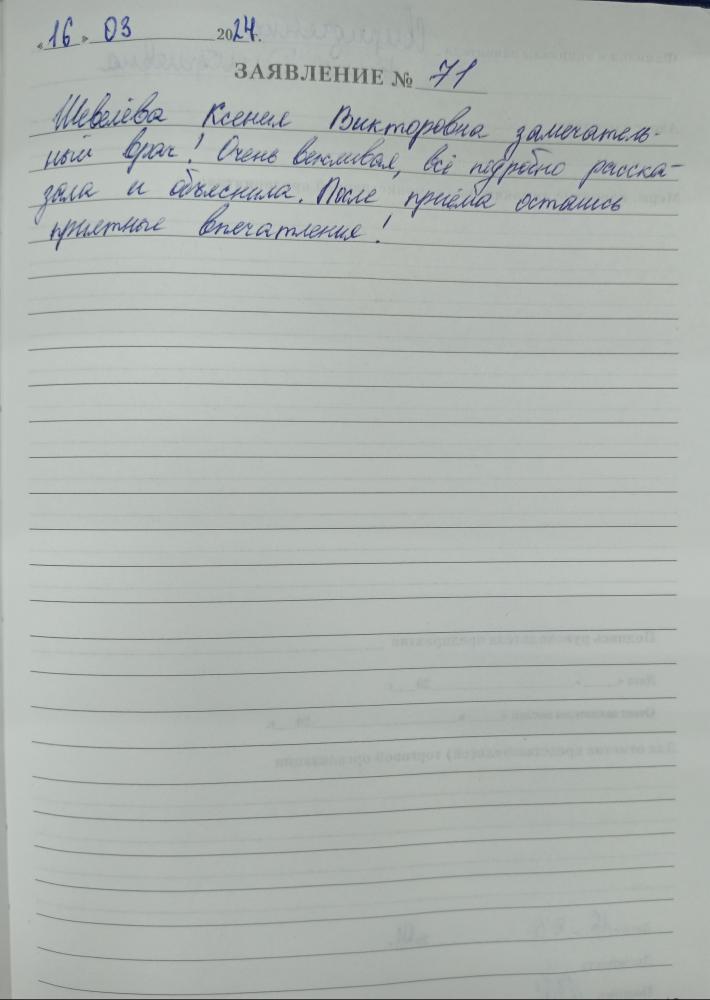 «16» 03 2024г.
ЗАЯВЛЕНИЕ № 71
Шевелёва Ксения Викторовна замечатель-
ный врач! Очень вежливая, всё подробно расска-
зала и объяснила. После приёма остались
приятные впечатления!